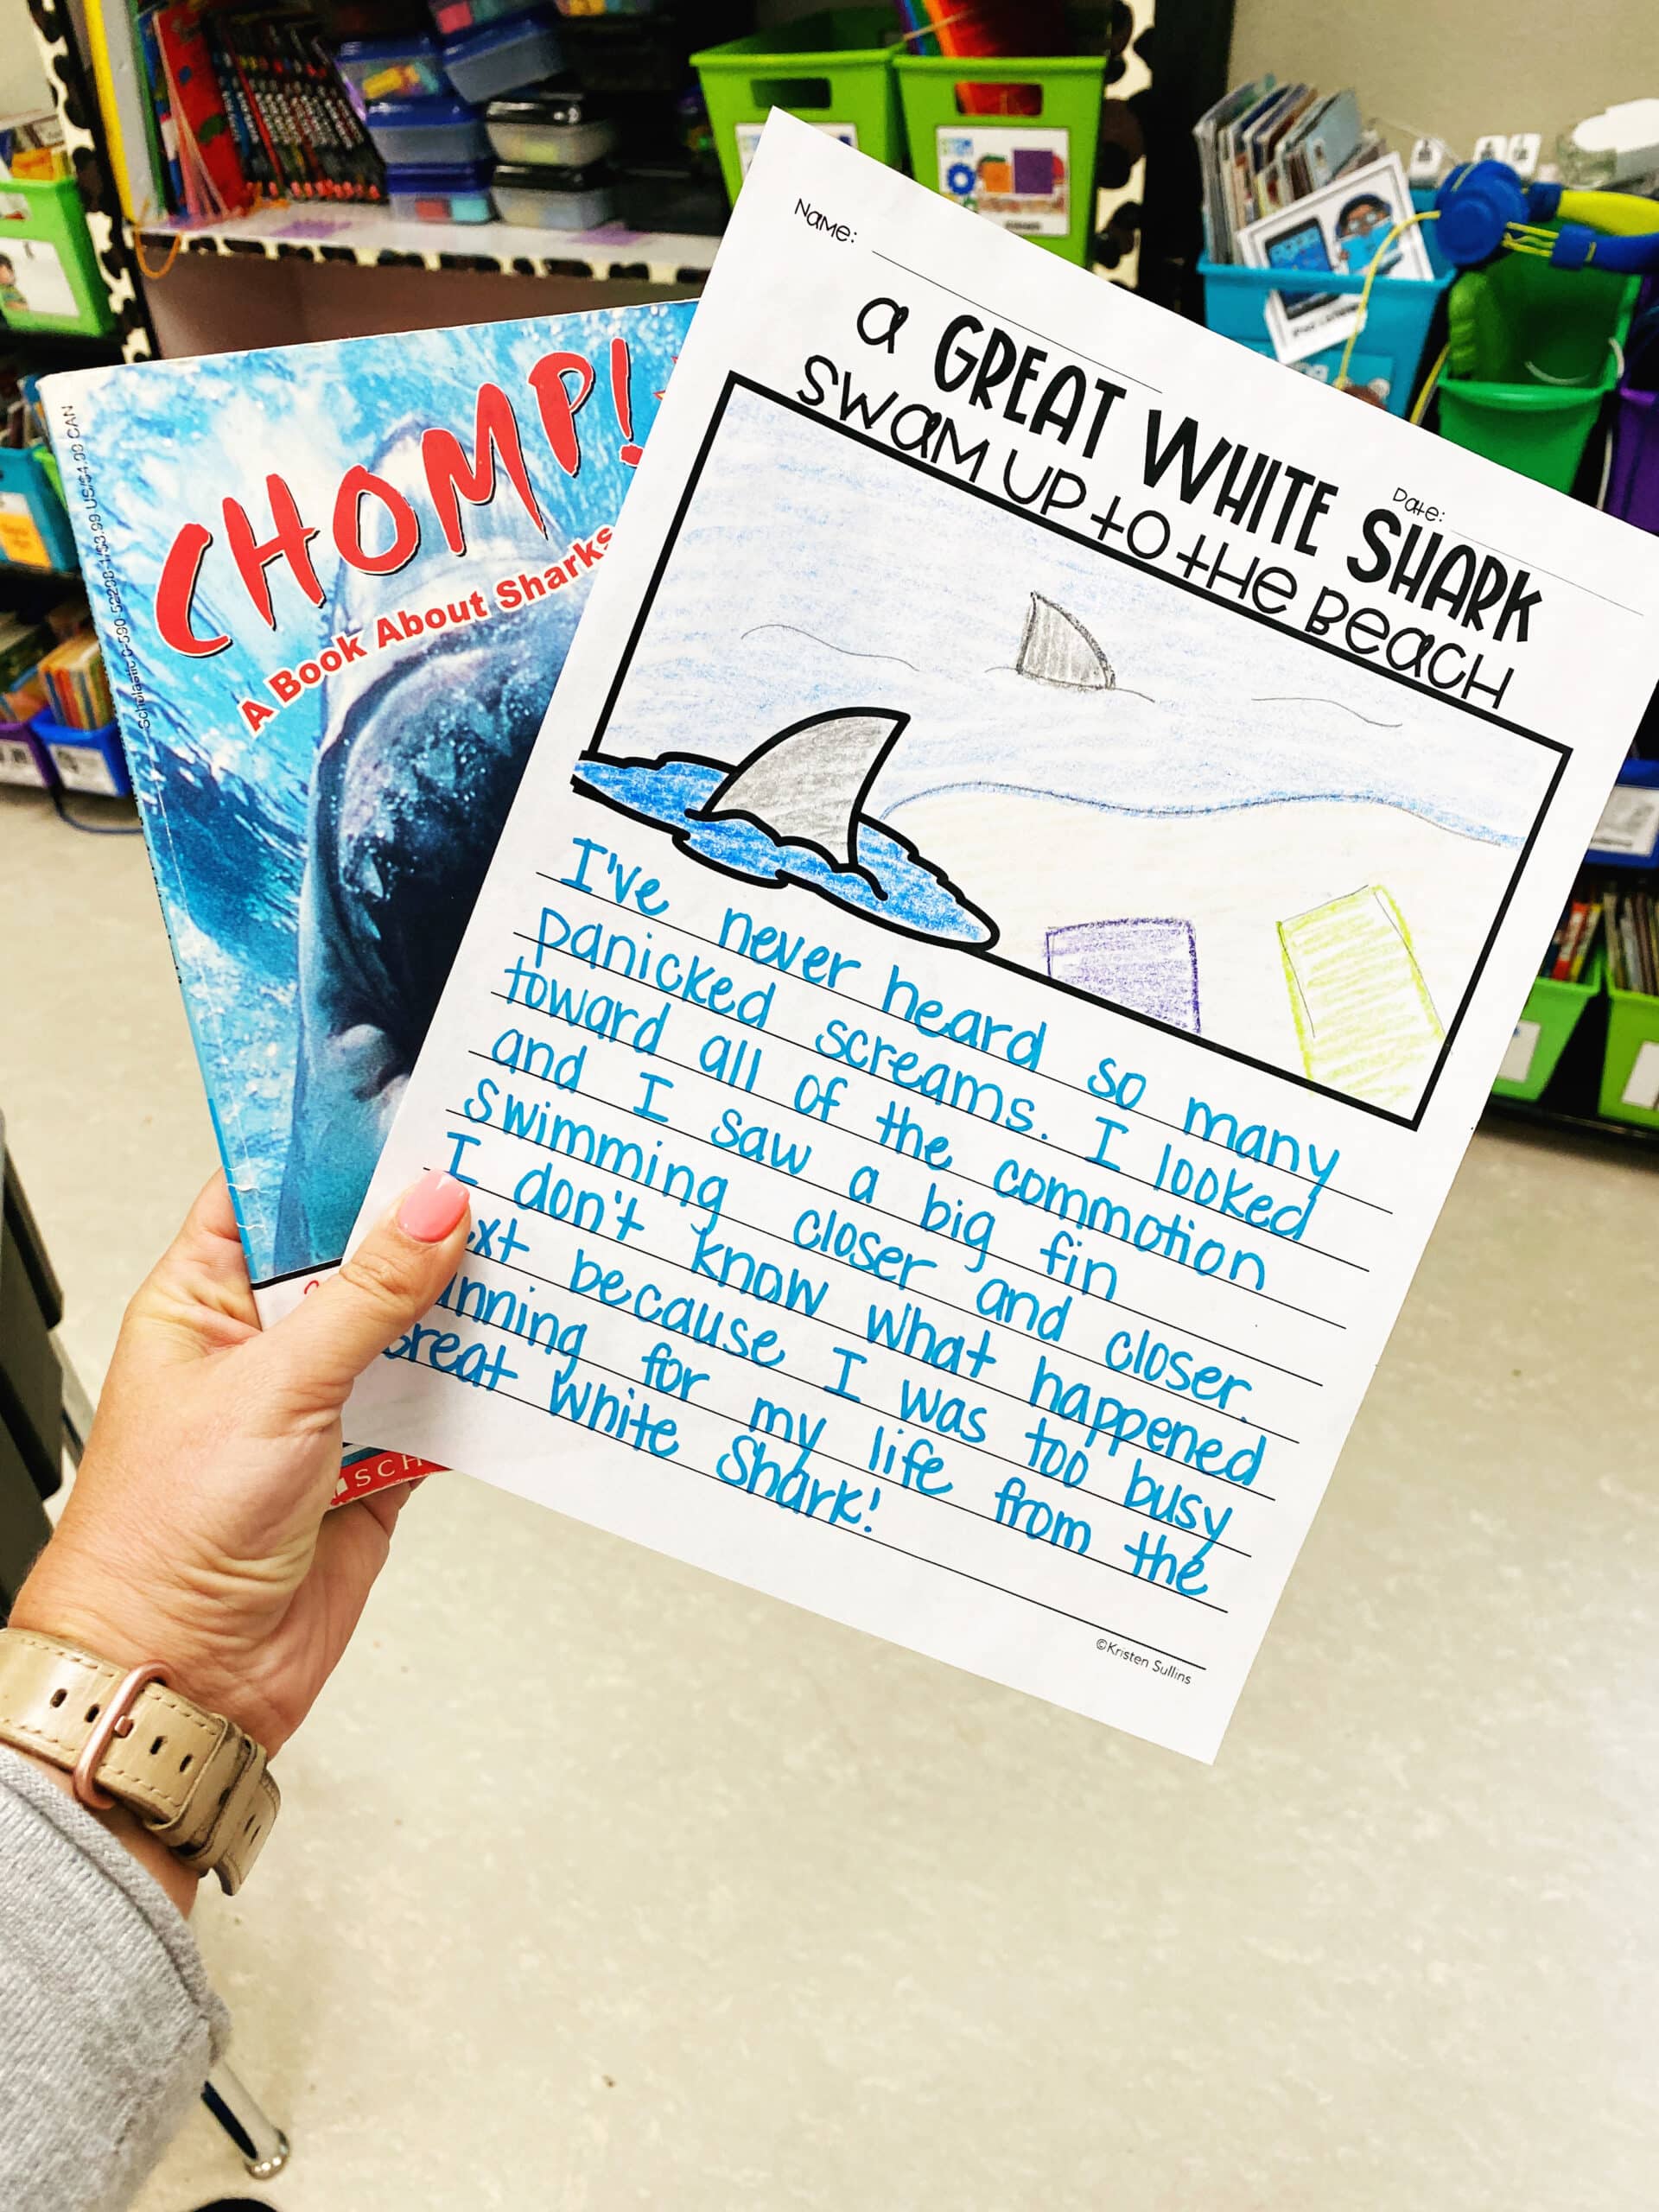 CHOMP!
A Book About Sharks
Scholastic 0-590-52298-1/$3.99 US/$4.99 CAN
SCH
Name:
Date:
a GREAT WHITE SHARK
SWaM UP to tHe BeacH
I've never heard so many
panicked screams. I looked
toward all of the commotion
and I saw a big fin
swimming closer and closer.
I don't know what happened
ext because I was too busy
unning for my life from the
Great White Shark!
©Kristen Sullins